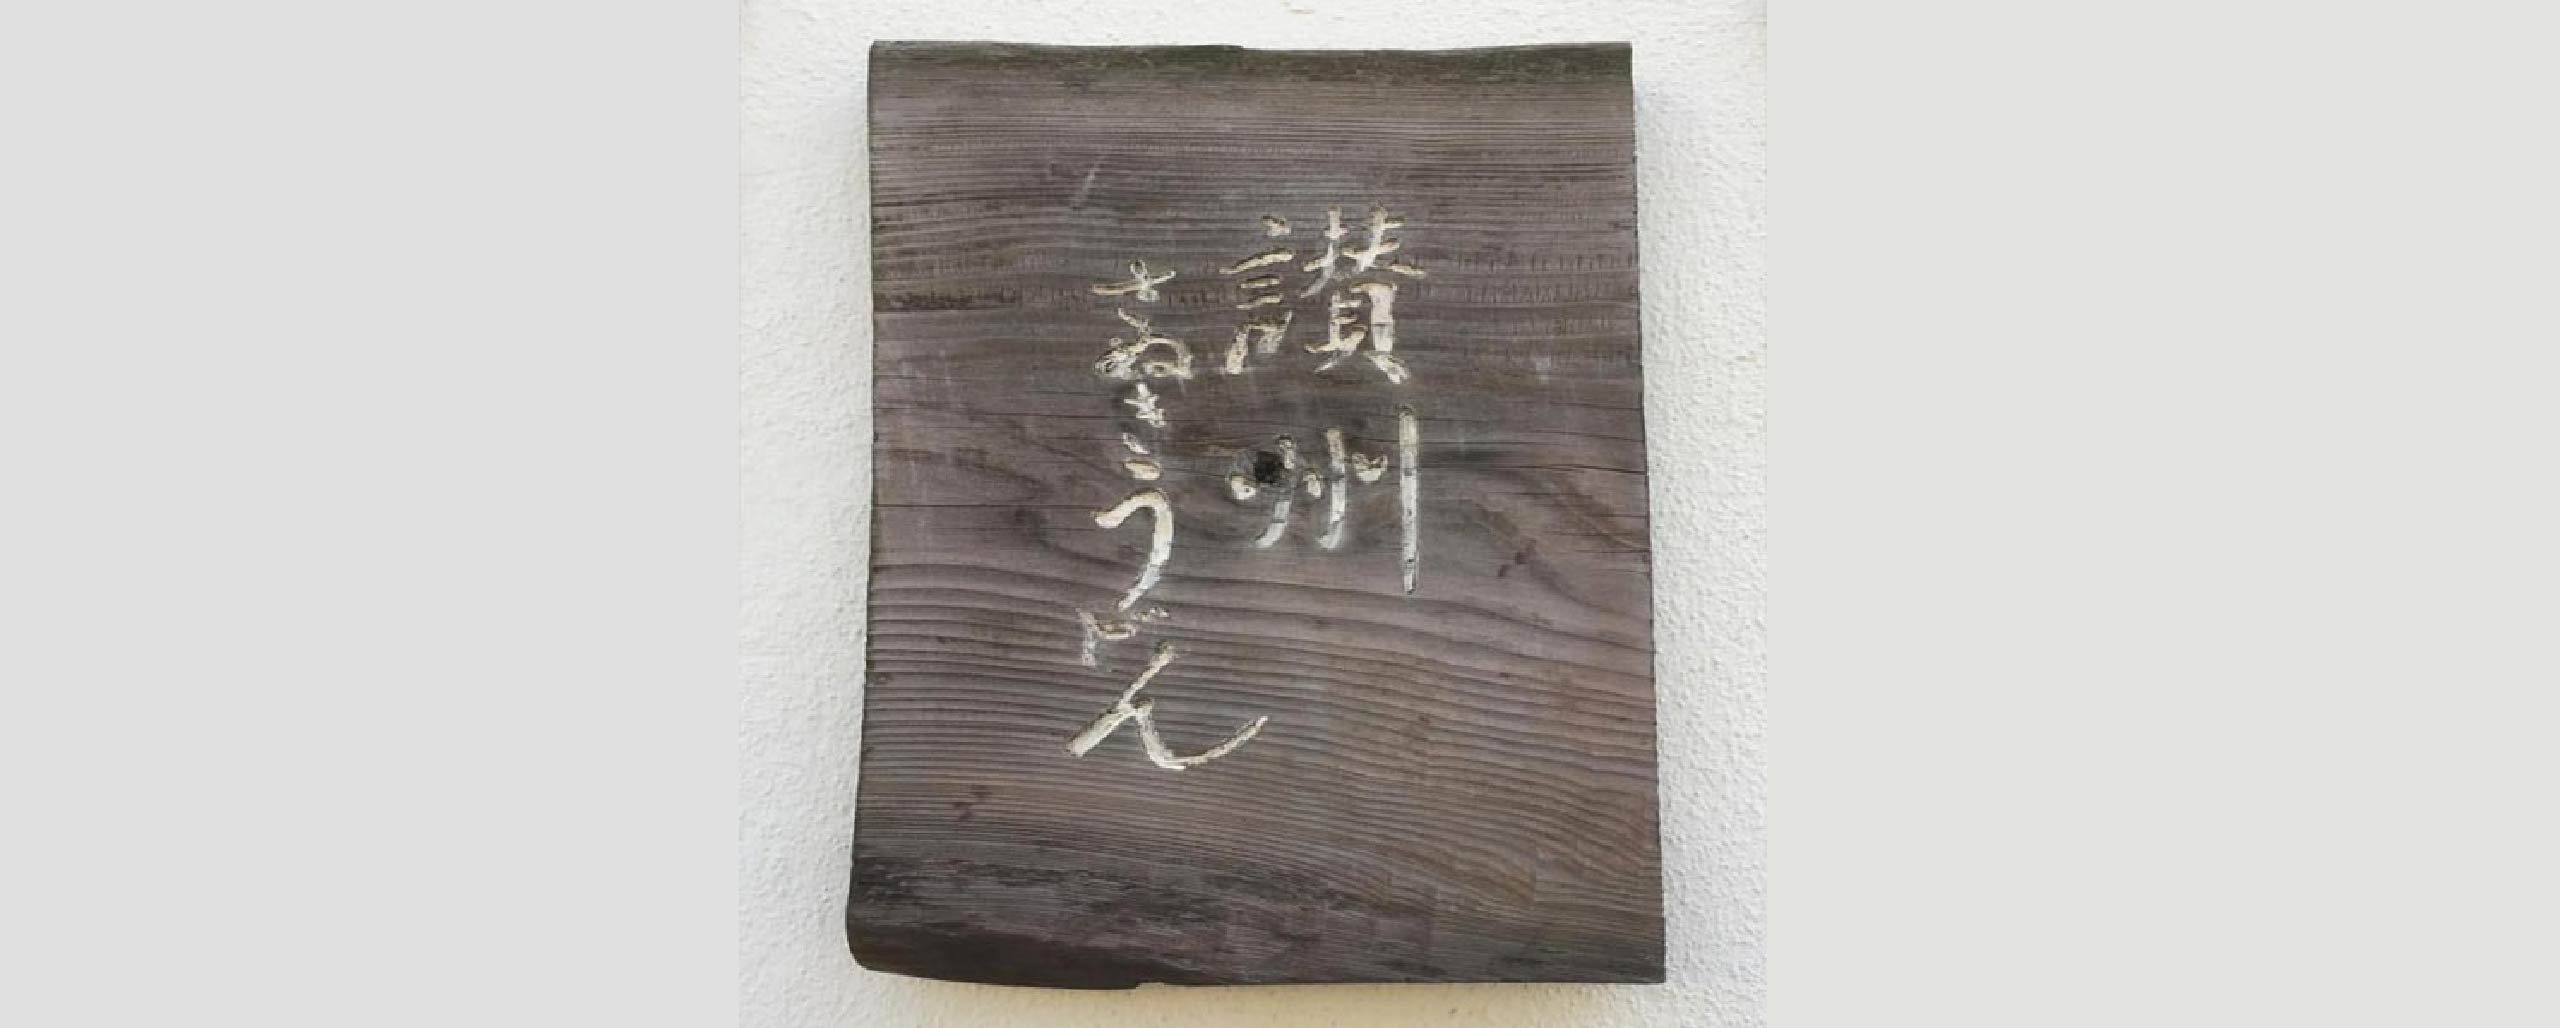 讃州
さぬきうどん